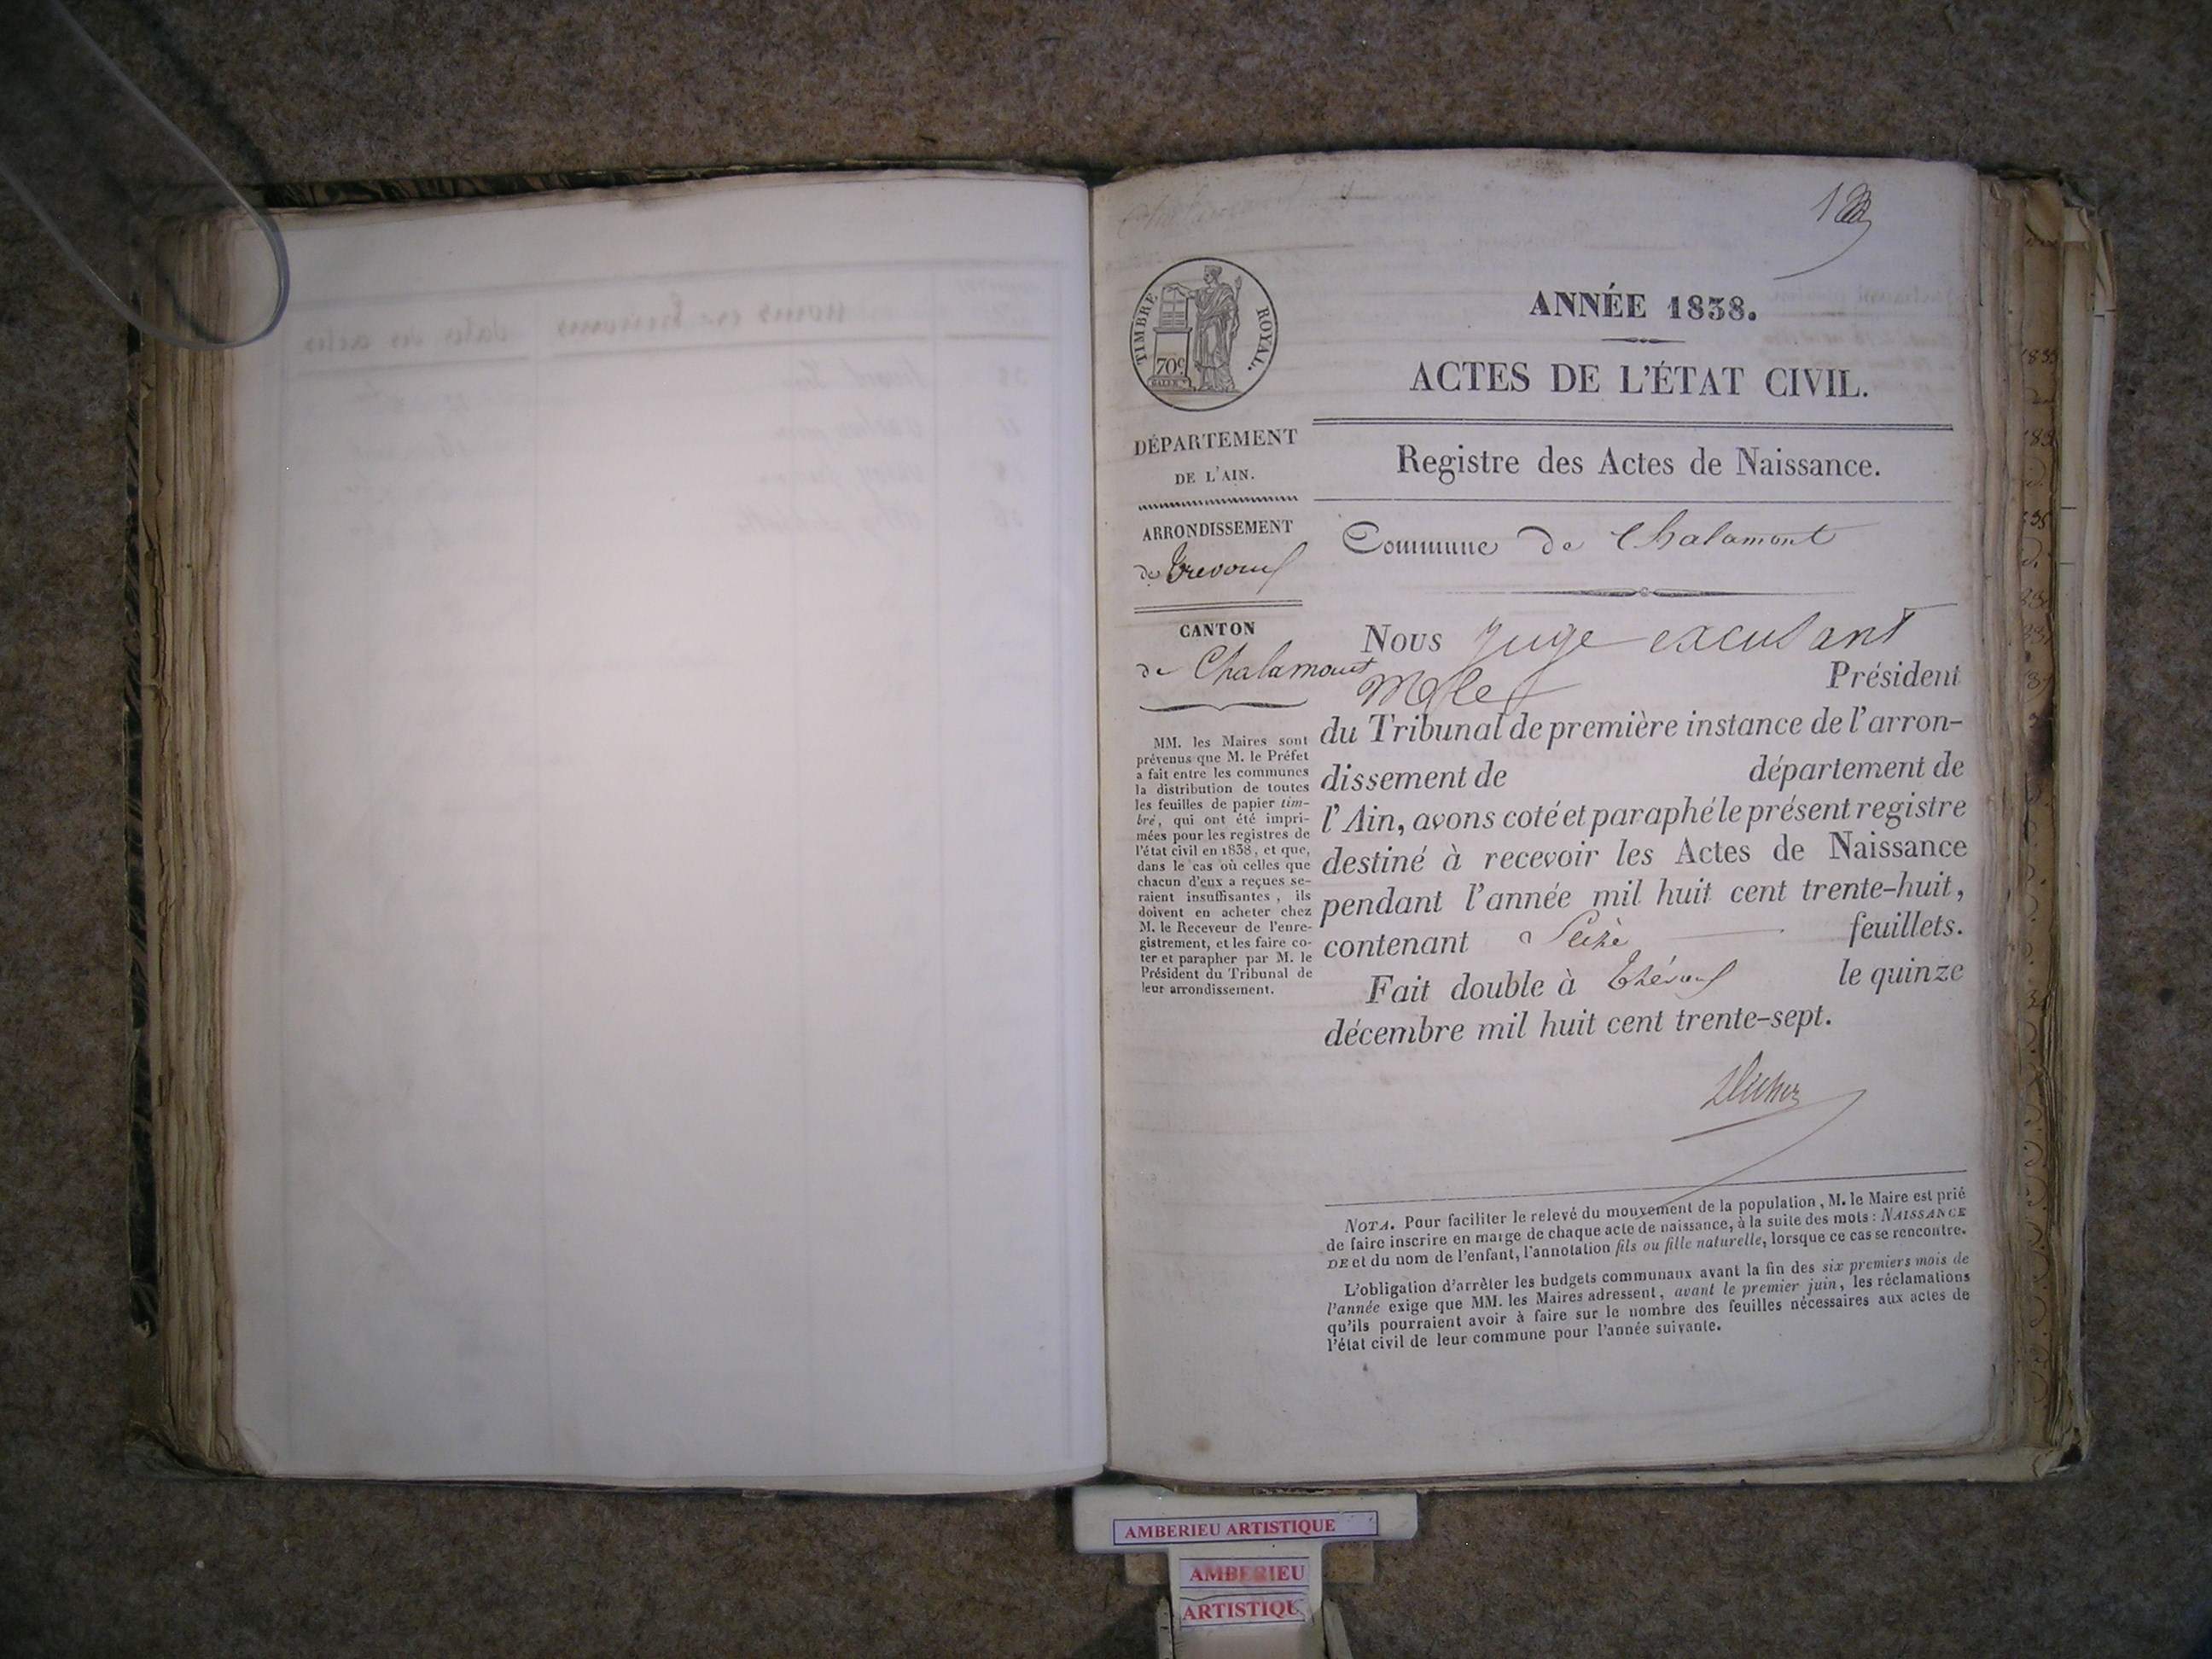 1
TIMBRE ROYAL.
70c
ANNÉE 1838.
ACTES DE L'ÉTAT CIVIL.
Registre des Actes de Naissance.
Commune de Chalamont
DÉPARTEMENT
DE L'AIN.
ARRONDISSEMENT
de Trevoux
CANTON
de Chalamont
MM. les Maires sont
prévenus que M. le Préfet
a fait entre les communes
la distribution de toutes
les feuilles de papier tim-
bré, qui ont été impri-
mées pour les registres de
l'état civil en 1838, et que,
dans le cas où celles que
chacun d'eux a reçues se-
raient insuffisantes, ils
doivent en acheter chez
M. le Receveur de l'enre-
gistrement, et les faire co-
ter et parapher par M. le
Président du Tribunal de
leur arrondissement.
Nous Juge excusant
Président
du Tribunal de première instance de l'arron-
dissement de département de
l'Ain, avons coté et paraphé le présent registre
destiné à recevoir les Actes de Naissance
pendant l'année mil huit cent trente-huit,
contenant Seize feuillets.
Fait double à Trévoux le quinze
décembre mil huit cent trente-sept.
NOTA. Pour faciliter le relevé du mouvement de la population, M. le Maire est prié
de faire inscrire en marge de chaque acte de naissance, à la suite des mots : NAISSANCE
DE et du nom de l'enfant, l'annotation fils ou fille naturelle, lorsque ce cas se rencontre.
L'obligation d'arrêter les budgets communaux avant la fin des six premiers mois de
l'année exige que MM. les Maires adressent, avant le premier juin, les réclamations
qu'ils pourraient avoir à faire sur le nombre des feuilles nécessaires aux actes de
l'état civil de leur commune pour l'année suivante.
AMBERIEU ARTISTIQUE
AMBERIEU
ARTISTIQU